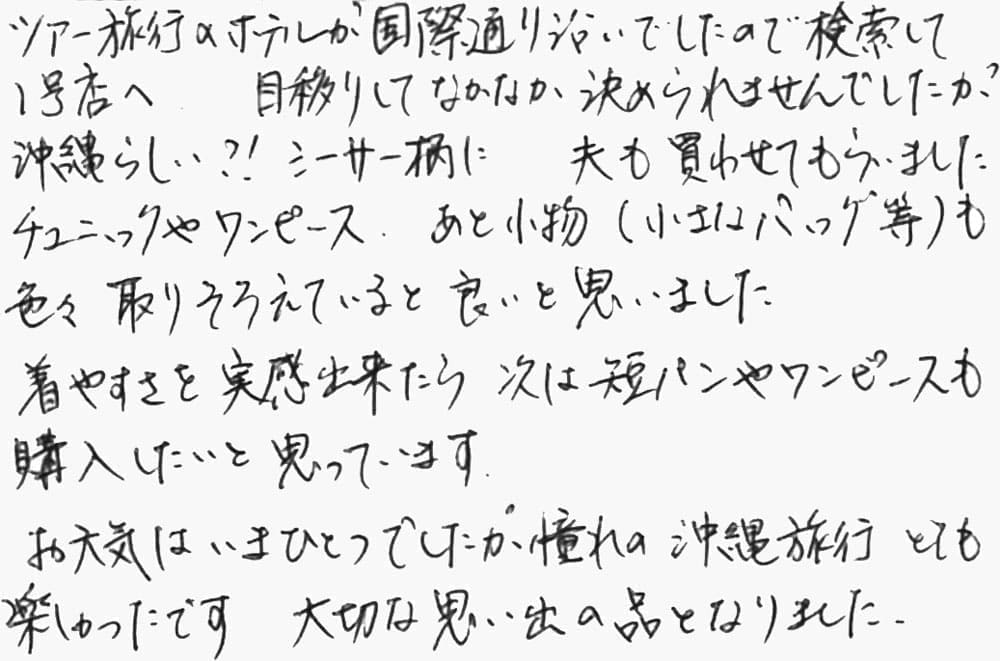 ツアー旅行のホテルが国際通り沿いでしたので検索して
1号店へ 目移りしてなかなか決められませんでしたが
沖縄らしい?! シーサー柄に 夫も買わせてもらいました
チュニックやワンピース. あと小物 (小さなバッグ等)も
色々 取りそろえていると良いと思いました
着やすさを実感出来たら 次は短パンやワンピースも
購入したいと思っています.
お天気はいまひとつでしたが、憧れの沖縄旅行 とても
楽しかったです 大切な思い出の品となりました.